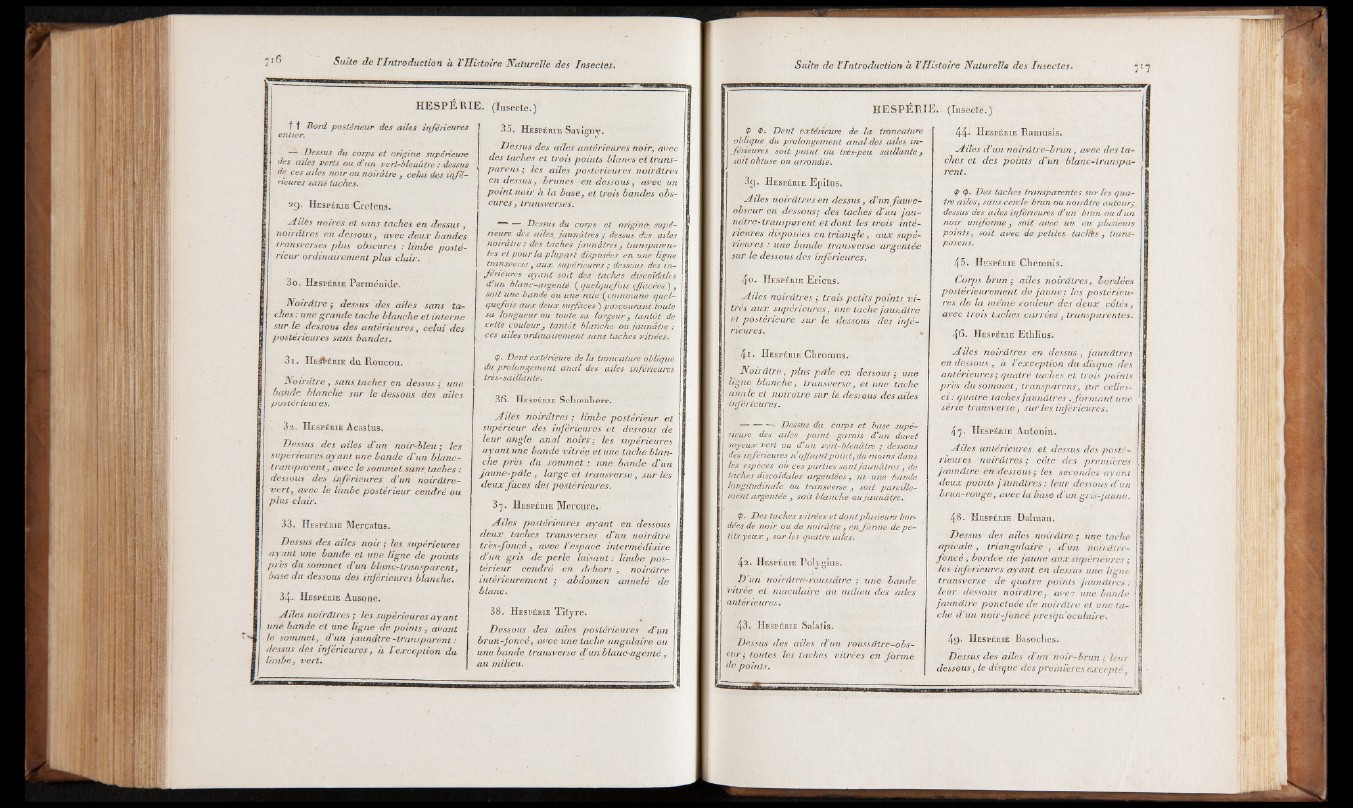 716
Suite de l'Introduction à l'Histoire Naturelle des Insectes.
HESPÉRIE. (Insecte.)
†† Bord postérieur des ailes inférieures
entier.
— Dessus du corps et origine supérieure
des ailes verts ou d'un vert-bleuâtre : dessus
de ces ailes noir ou noirâtre, celui des infé-
rieures sans taches.
29. Hespérie Creteus.
Ailes noires et sans taches en dessus,
noirâtres en dessous, avec deux bandes
transverses plus obscures : limbe posté-
rieur ordinairement plus clair.
30. Hespérie Parménide.
Noirâtre ; dessus des ailes sans ta-
ches : une grande tache blanche et interne
sur le dessous des antérieures, celui des
postérieures sans bandes.
31. Hespérie du Roucou.
Noirâtre, sans taches en dessus ; une
bande blanche sur le dessous des ailes
postérieures.
32. Hespérie Acastus.
Dessus des ailes d'un noir-bleu ; les
supérieures ayant une bande d'un blanc-
transparent, avec le sommet sans taches :
dessous des inférieures d'un noirâtre-
vert, avec le limbe postérieur cendré ou
plus clair.
33. Hespérie Mercatus.
Dessus des ailes noir ; les supérieures
ayant une bande et une ligne de points
près du sommet d'un blanc-transparent,
base du dessous des inférieures blanche.
34. Hespérie Ausone.
Ailes noirâtres ; les supérieures ayant
une bande et une ligne de points, avant
le sommet, d'un jaunâtre-transparent :
dessus des inférieures, à l'exception du
limbe, vert.
35. Hespérie Savigny.
Dessus des ailes antérieures noir, avec
des taches et trois points blancs et trans-
parens ; les ailes postérieures noirâtres
en dessus, brunes en dessous, avec un
point noir à la base, et trois bandes obs-
cures, transverses.
— — Dessus du corps et origine supé-
rieure des ailes jaunâtres ; dessus des ailes
noirâtre : des taches jaunâtres, transparen-
tes et pour la plupart disposées en une ligne
transverse, aux supérieures ; dessous des in-
férieures ayant soit des taches discoïdales
d'un blanc-argenté (quelquefois effacées),
soit une bande ou une raie (commune quel-
quefois aux deux surfaces) parcourant toute
sa longueur ou toute sa largeur, tantôt de
cette couleur, tantôt blanche ou jaunâtre :
ces ailes ordinairement sans taches vitrées.
φ. Dent extérieure de la troncature oblique
du prolongement anal des ailes inférieures
très-saillante.
36. Hespérie Schœnherr.
Ailes noirâtres ; limbe postérieur et
supérieur des inférieures et dessous de
leur angle anal noirs ; les supérieures
ayant une bande vitrée et une tache blan-
che près du sommet : une bande d'un
jaune-pâle, large et transverse, sur les
deux faces des postérieures.
37. Hespérie Mercure.
Ailes postérieures ayant en dessous
deux taches transverses d'un noirâtre
très-foncé, avec l'espace intermédiaire
d'un gris de perle luisant : limbe pos-
térieur cendré en dehors, noirâtre
intérieurement ; abdomen annelé de
blanc.
38. Hespérie Tityre.
Dessous des ailes postérieures d'un
brun-foncé, avec une tache angulaire ou
une bande transverse d'un blanc-agenté,
au milieu.
Suite de l'Introduction à l'Histoire Naturelle des Insectes.
717
HESPÉRIE. (Insecte.)
φ φ. Dent extérieure de la troncature
oblique du prolongement anal des ailes in-
férieures soit point ou très-peu saillante,
soit obtuse ou arrondie.
39. Hespérie Epitus.
Ailes noirâtres en dessus, d'un fauve-
obscur en dessous; des taches d'un jau-
nâtre-transparent et dont les trois inté-
rieures disposées en triangle, aux supé-
rieures : une bande transverse argentée
sur le dessous des inférieures.
40. Hespérie Ericus.
Ailes noirâtres ; trois petits points vi-
trés aux supérieures, une tache jaunâtre
et postérieure sur le dessous des infé-
rieures.
41. Hespérie Chromus.
Noirâtre, plus pâle en dessous ; une
ligne blanche, transverse, et une tache
anale et noirâtre sur le dessous des ailes
inférieures.
— — — Dessus du corps et base supé-
rieure des ailes point garnis d'un duvet
soyeux vert ou d'un vert-bleuâtre ; dessous
des inférieures n'offrant point, du moins dans
les espèces où ces parties sont jaunâtres, de
taches discoïdales argentées, ni une bande
longitudinale ou transverse, soit pareille-
ment argentée, soit blanche ou jaunâtre.
φ. Des taches vitrées et dont plusieurs bor-
dées de noir ou de noirâtre, en forme de pe-
tits yeux, sur les quatre ailes.
42. Hespérie Polygius.
D'un noirâtre-roussâtre ; une bande
vitrée et maculaire au milieu des ailes
antérieures.
43. Hespérie Salatis.
Dessus des ailes d'un roussâtre-obs-
cur ; toutes les taches vitrées en forme
de points.
44. Hespérie Ramusis.
Ailes d'un noirâtre-brun, avec des ta-
ches et des points d'un blanc-transpa-
rent.
φ φ. Des taches transparentes sur les qua-
tre ailes, sans cercle brun ou noirâtre autour;
dessus des ailes inférieures d'un brun ou d'un
noir uniforme, soit avec un ou plusieurs
points, soit avec de petites taches, trans-
parens.
45. Hespérie Chemnis.
Corps brun ; ailes noirâtres, bordées
postérieurement de jaune : les postérieu-
res de la même couleur des deux côtés,
avec trois taches carrées, transparentes.
46. Hespérie Ethlius.
Ailes noirâtres en dessus, jaunâtres
en dessous, à l'exception du disque des
antérieures; quatre taches et trois points
près du sommet, transparens, sur celles-
ci : quatre taches jaunâtres, formant une
série transverse, sur les inférieures.
47. Hespérie Antonin.
Ailes antérieures et dessus des posté-
rieures noirâtres ; côte des premières
jaunâtre en dessous ; les secondes ayant
deux points jaunâtres : leur dessous d'un
brun-rouge, avec la base d'un gris-jaune.
48. Hespérie Dalman.
Dessus des ailes noirâtre ; une tache
apicale, triangulaire, d'un noirâtre-
foncé, bordée de jaune aux supérieures ;
les inférieures ayant en dessus une ligne
transverse de quatre points jaunâtres :
leur dessous noirâtre, avec une bande
jaunâtre ponctuée de noirâtre et une ta-
che d'un noir-foncé presqu'oculaire.
49. Hespérie Basoches.
Dessus des ailes d'un noir-brun ; leur
dessous, le disque des premières excepté,